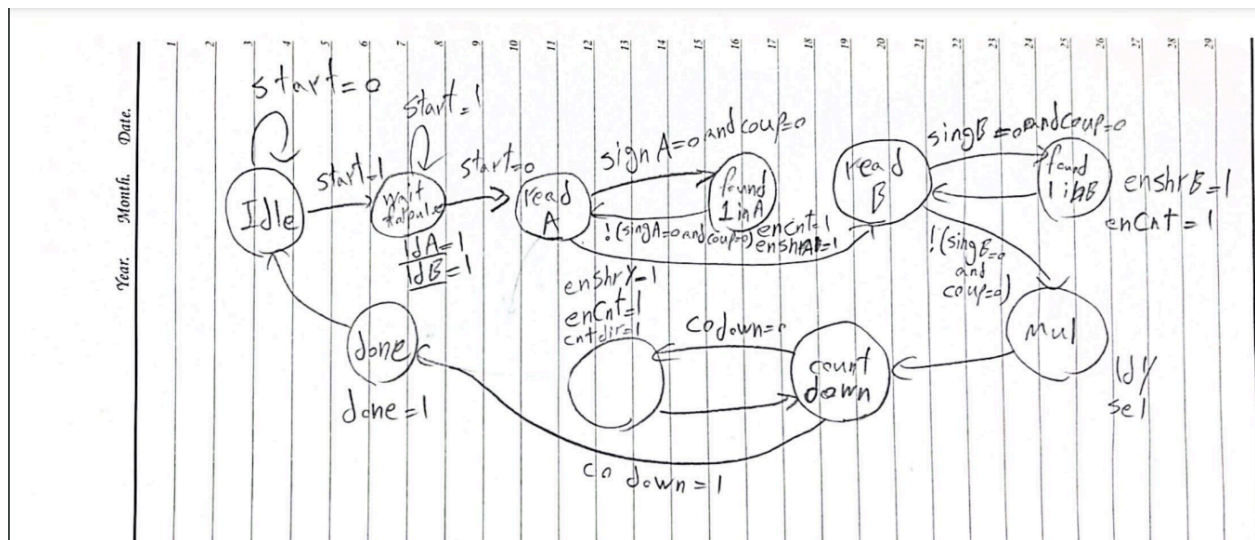 Year. Month. Date.
1 2 3 4 5 6 7 8 9 10 11 12 13 14 15 16 17 18 19 20 21 22 23 24 25 26 27 28 29
start=0
start=1
start=1
start=0
Idle
wait
ldA=1
ldB=1
read
A
signA=0 and coup=0
found
1 in A
!(singA=0 and coup=0)
enCnt=1
enshrA=1
read
B
singB=0 and coup=0
found
1 in B
enshrB=1
enCnt=1
!(singB=0
and
coup=0)
Mul
ldY
sel
count
down
co down=0
enshrY=1
enCnt=1
cntdir=1
co down=1
done
done=1